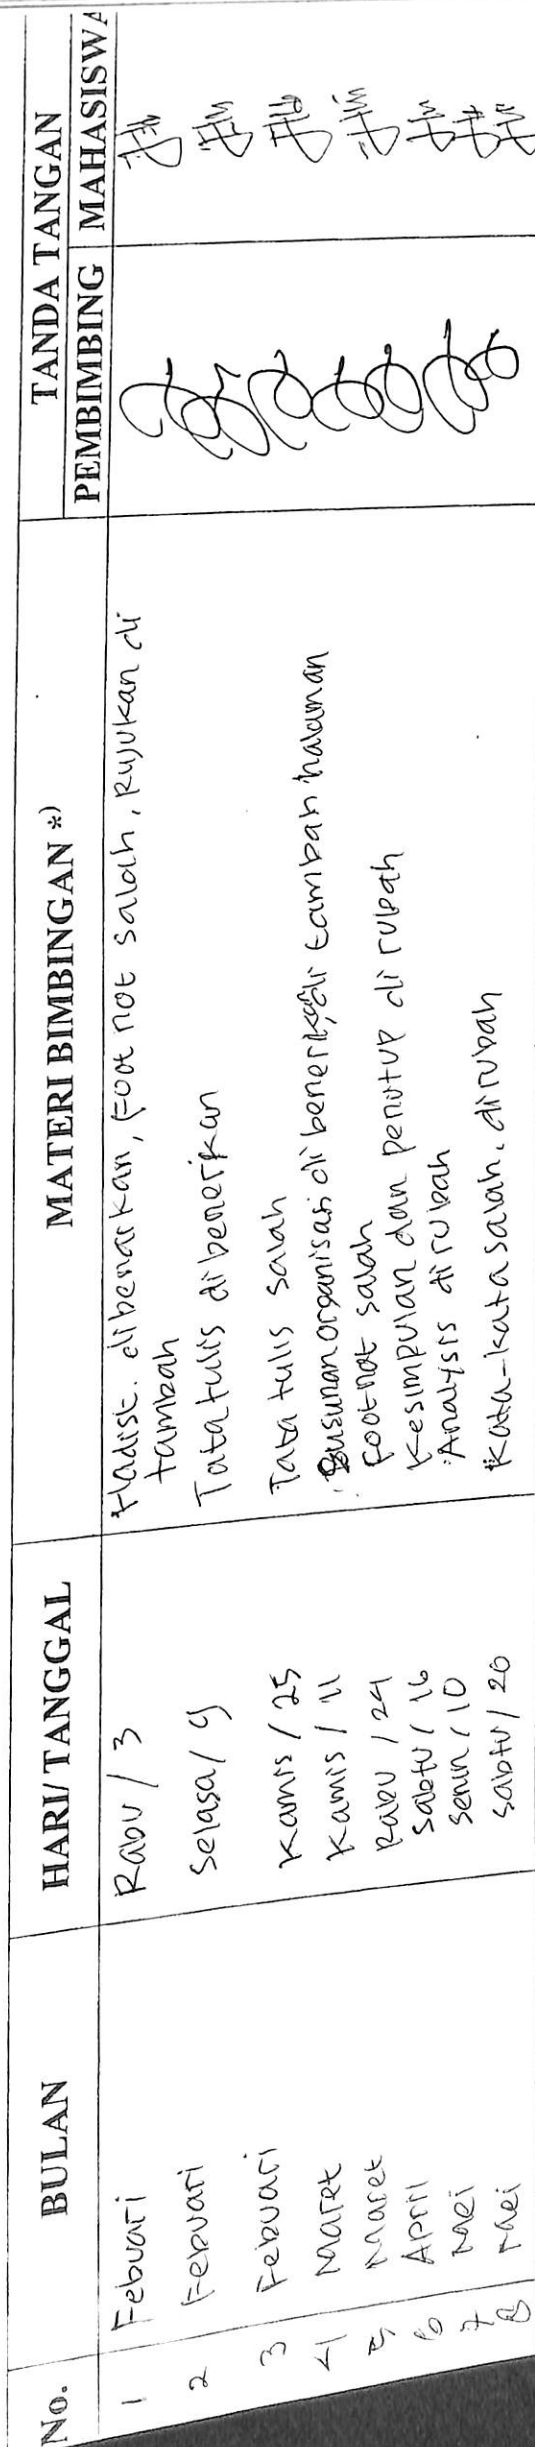 No. BULAN HARI/TANGGAL MATERI BIMBINGAN *) TANDA TANGAN
PEMBIMBING MAHASISWA
1 Febuari Rabu / 3 Hadist. dibenarkan, Foot not salah, Rujukan di
tambah
2 Febuari Selasa / 9 Tata tulis dibenerkan
3 Febuari Kamis / 25 Tata tulis salah
4 Maret Kamis / 11 Susunan organisasi di benerkan, di tambah halaman
5 Maret Rabu / 24 footnot salah
6 April Sabtu / 16 Kesimpulan dan penutup di rubah
7 Mei Senin / 10 Analysis dirubah
8 Mei Sabtu / 20 Kata-kata salah, dirubah